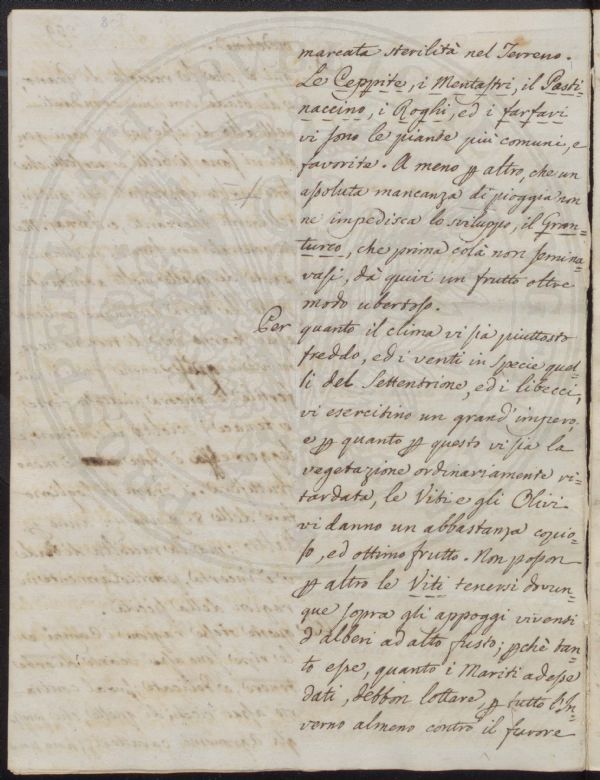 marcata sterilità nel Terreno.
Le Ceppite, i Mentastri, il Pasti-
naccino, i Roghi, ed i farfari
vi sono le piante più comuni, e
favorite. A meno p altro, che un
assoluta mancanza di pioggia non
ne impedisca lo sviluppo, il Gran-
turco, che prima colà non semina-
vasi, dà quivi un frutto oltre
modo ubertoso.
Per quanto il clima vi sia piuttosto
freddo, ed i venti in specie quel-
li del Settentrione, ed i libecci,
vi esercitino un grand'impero,
e p quanto p questo vi sia la
vegetazione ordinariamente ri-
tardata, le Viti e gli Olivi
vi danno un abbastanza copio-
so, ed ottimo frutto. Non posson
p altro le Viti tenersi dovun-
que sopra gli appoggi viventi
d'alberi ad alto fusto; pchè tan-
to esse, quanto i Mariti ad esse
dati, debbon lottare, p tutto l'In-
verno almeno contro il furore